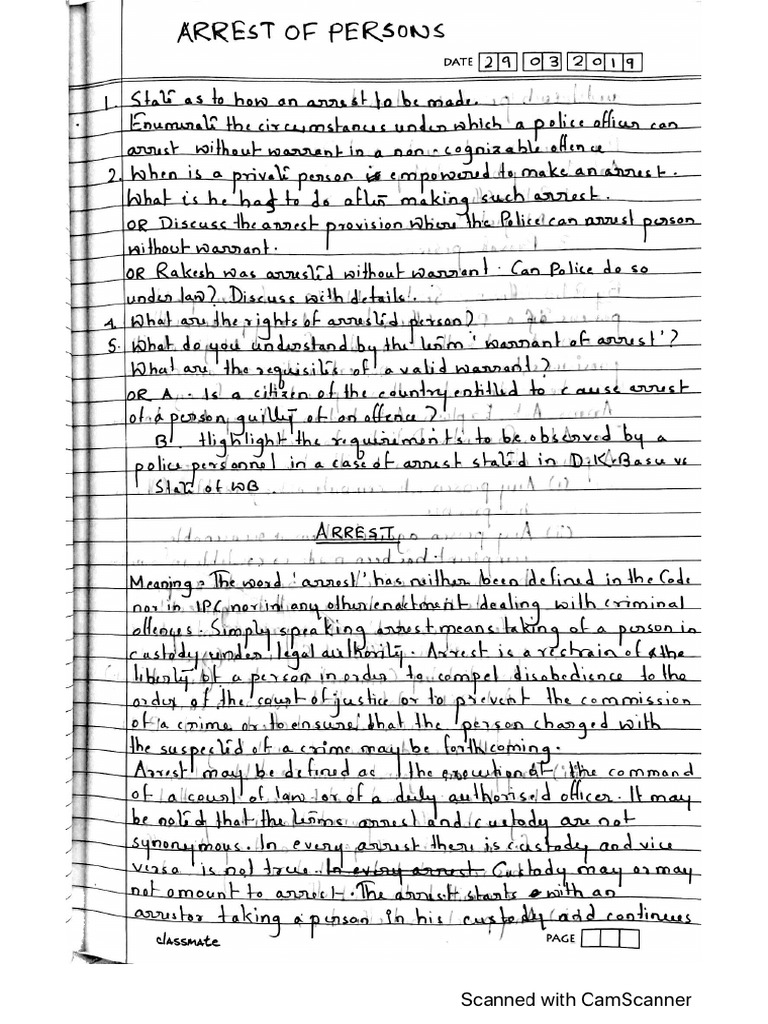 ARREST OF PERSONS
DATE 29 03 2019
1. State as to how an arrest to be made.
Enumurate the circumstances under which a police officer can
arrest without warrant in a non-cognizable offence
2. When is a private person is empowered to make an arrest.
What is he has to do after making such arrest.
OR Discuss the arrest provision where the Police can arrest person
without warrant.
OR Rakesh was arrested without warrant. Can Police do so
under law? Discuss with details.
4. What are the rights of arrested person?
5. What do you understand by the term 'warrant of arrest'?
What are the requisites of a valid warrant?
OR A. Is a citizen of the country entitled to cause arrest
of a person guilty of an offence?
B. Highlight the requirements to be observed by a
police personnel in a case of arrest stated in D.K. Basu vs
State of WB.
ARREST
Meaning:- The word 'arrest' has neither been defined in the Code
nor in IPC nor in any other enactment dealing with criminal
offences. Simply speaking arrest means taking of a person in
custody under legal authority. Arrest is a restrain of the
liberty of a person in order to compel disobedience to the
order of the court of justice or to prevent the commission
of a crime or to ensure that the person charged with
the suspected of a crime may be forthcoming.
Arrest may be defined as the execution of the command
of a court of law or of a duly authorised officer. It may
be noted that the terms arrest and custody are not
synonymous. In every arrest there is custody and vice
versa is not true. In every arrest Custody may or may
not amount to arrest. The arrest starts with an
arrestor taking a person in his custody and continues
classmate
PAGE
Scanned with CamScanner